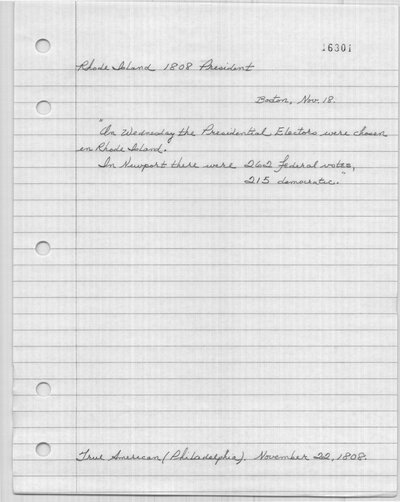 16301
Rhode Island 1808 President
Boston, Nov. 18.
"On Wednesday the Presidential Electors were chosen
in Rhode Island.
In Newport there were 262 federal votes,
215 democratic."
True American (Philadelphia). November 22, 1808.